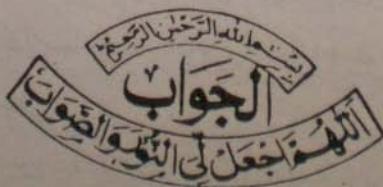 بِسْمِ اللهِ الرَّحْمٰنِ الرَّحِيْمِ
اَلْجَوَابْ
اَللّٰهُمَّ اجْعَلْ لِّى النُّوْرَ وَالصَّوَابْ